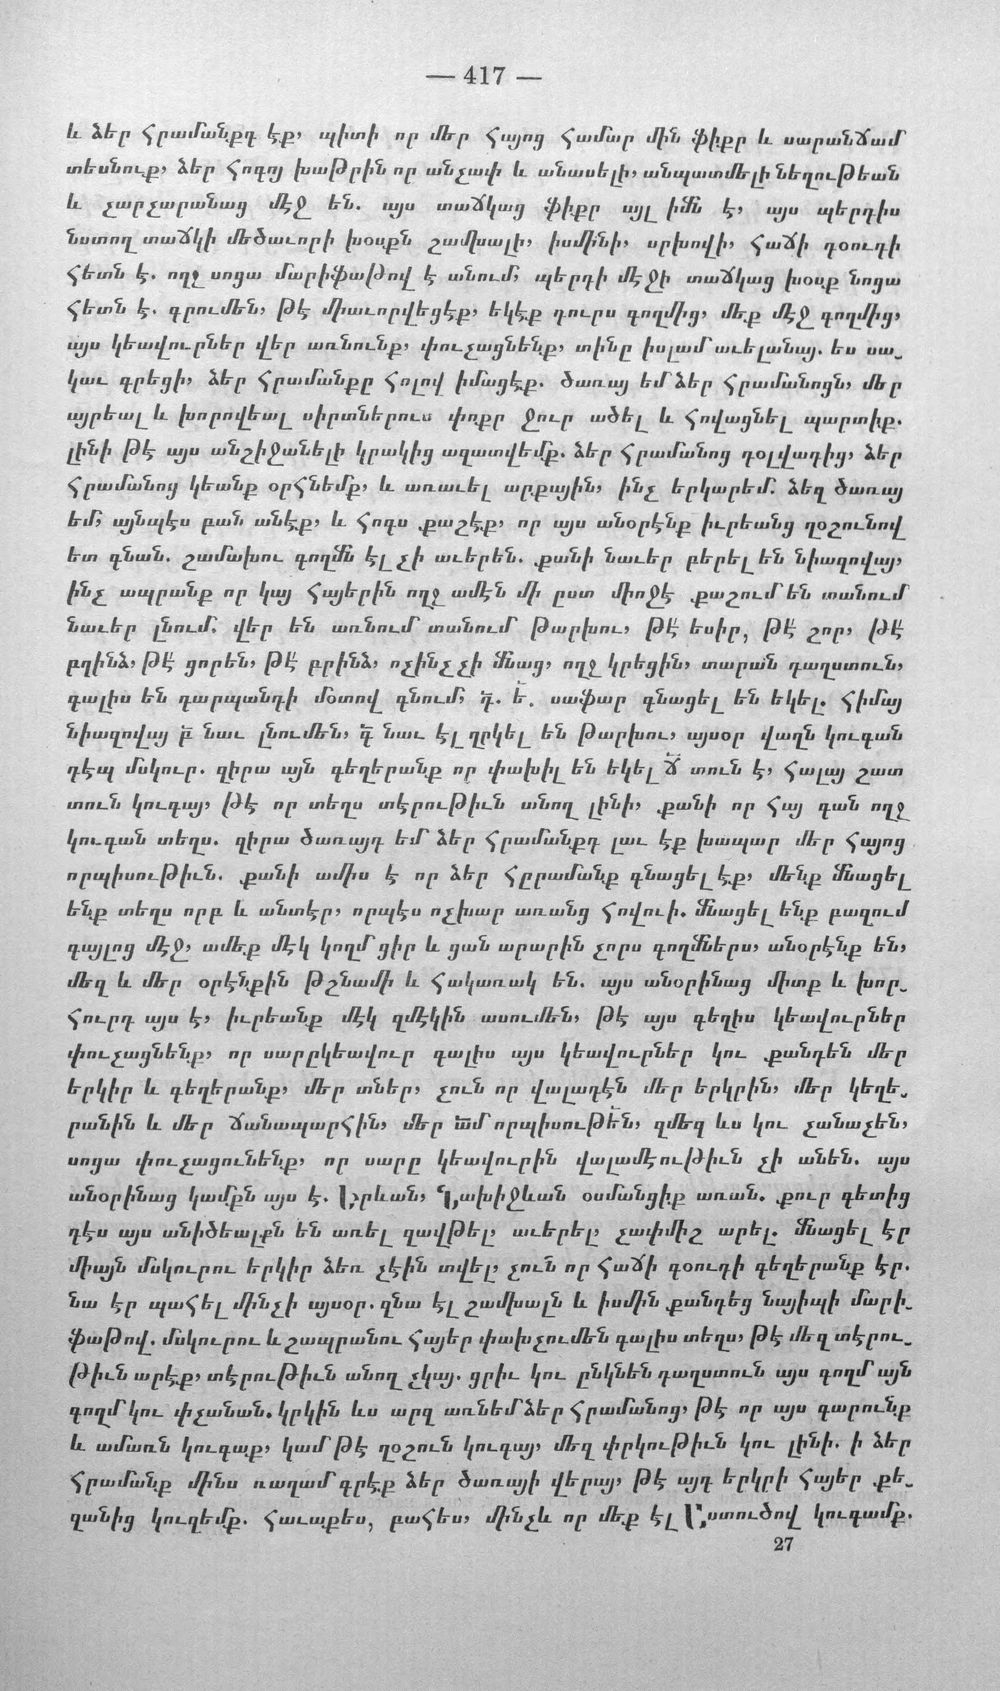 — 417 —
և ձեր հրամանքդ էք, պիտի որ մեր հայոց համար մին ֆիքր և սարանճամ
տեսնուք, ձեր հոգոյ խաթրին որ անչափ և անասելի, անպատմելի նեղութեան
և չարչարանաց մէջ են. այս տաճկաց ֆիքր այլ իմն է, այս պերդիս
նստող տաճկի մեծաւորի խօսքն շամխալի, իսմինի, սրխովի, հաճի դօուդի
հետն է. ողջ սոցա մարիֆաթով է անում, պերդի մէջի տաճկաց խօսք նոցա
հետն է. գրումեն, թէ միաւորվեցէք, եկէք դուրս գողմից, մեք մէջ գողմից,
այս կեավուրներ վեր առնունք, փուչացնենք, տինը իսլամ աւելանայ. ես սա֊
կաւ գրեցի, ձեր հրամանքը հոլով իմացէք. ծառայ եմ ձեր հրամանոցն, մեր
այրեալ և խորովեալ սիրտներուս փոքր ջուր ածել և հովացնել պարտիք.
լինի թէ այս անշիջանելի կրակից ազատվեմք. ձեր հրամանոց դօլվադից, ձեր
հրամանոց կեանք օրհնեմք, և առաւել արքային, ինչ երկարեմ. ձեզ ծառայ
եմ, այնպէս բան անէք, և հոգս քաշէք, որ այս անօրէնք իւրեանց ղօշունով
ետ գնան. շամախու գողմն էլ չի աւերեն. քանի նաւեր բերել են նիազովայ,
ինչ ապրանք որ կայ հայերին ողջ ամէն մի ըստ միոջէ քաշում են տանում
նաւեր լնում. վեր են առնում տանում թարխու, թէ եսիր, թէ շոր, թէ
բղինձ, թէ ցորեն, թէ բրինձ, ոչինչ չի մնաց, ողջ կրեցին, տարան դաղստուն,
գալիս են դարպանդի մօտով գնում, դ. ե. սաֆար գնացել են եկել. հիմայ
նիազովայ բ նաւ լնումեն, դ նաւ էլ ղրկել են թարխու, այսօր վաղն կուգան
դէպ մսկուր. զիրա այն գեղերանք որ փախիլ են եկել ճ տուն է, հալայ շատ
տուն կուգայ, թէ որ տեղս տէրութիւն անող լինի, քանի որ հայ գան ողջ
կուգան տեղս. զիրա ծառայդ եմ ձեր հրամանքդ լաւ էք խապար մեր հայոց
որպիսութիւն. քանի ամիս է որ ձեր հըրամանք գնացել էք, մենք մնացել
ենք տեղս որբ և անտէր, որպէս ոչխար առանց հովուի. մնացել ենք բազում
գայլոց մէջ, ամեք մէկ կողմ ցիր և ցան արարին չորս գողմներս, անօրէնք են,
մեզ և մեր օրէնքին թշնամի և հակառակ են. այս անօրինաց միտք և խոր֊
հուրդ այս է, իւրեանք մէկ զմէկին ասումեն, թէ այս գեղիս կեավուրներ
փուչացնենք, որ սարըկեավուր գալիս այս կեավուրներ կու քանդեն մեր
երկիր և գեղերանք, մեր տներ, չուն որ վալադէն մեր երկրին, մեր կեղե֊
րանին և մեր ճանապարհին, մեր ամ որպիսութեն, զմեզ ևս կու չանաչեն,
սոցա փուչացունենք, որ սարը կեավուրին վալամէութիւն չի անեն. այս
անօրինաց կամքն այս է. Երևան, Նախիջևան օսմանցիք առան. քուր գետից
դէս այս անիծեալքն են առել զավթել, աւերել, չափմիշ արել. մնացել էր
միայն մսկուրու երկիր ձեռ չէին տվել, չուն որ հաճի դօուդի գեղերանք էր.
նա էր պահել մինչի այսօր. զնա էլ շամխալն և իսմին քանդեց նայիպի մարի֊
ֆաթով. մսկուրու և շապրանու հայեր փախչումեն գալիս տեղս, թէ մեզ տէրու֊
թիւն արէք, տէրութիւն անող չկայ. ցրիւ կու ընկնեն դաղստուն այս գողմ այն
գողմ կու փչանան. կրկին ևս արզ առնեմ ձեր հրամանոց, թէ որ այս գարունք
և ամառն կուգաք, կամ թէ ղօշուն կուգայ, մեզ փրկութիւն կու լինի. ի ձեր
հրամանք մինս ռաղամ գրէք ձեր ծառայի վերայ, թէ այդ երկրի հայեր քե֊
զանից կուզեմք. հաւաքես, բահես, մինչև որ մեք էլ Աստուծով կուգամք.
27